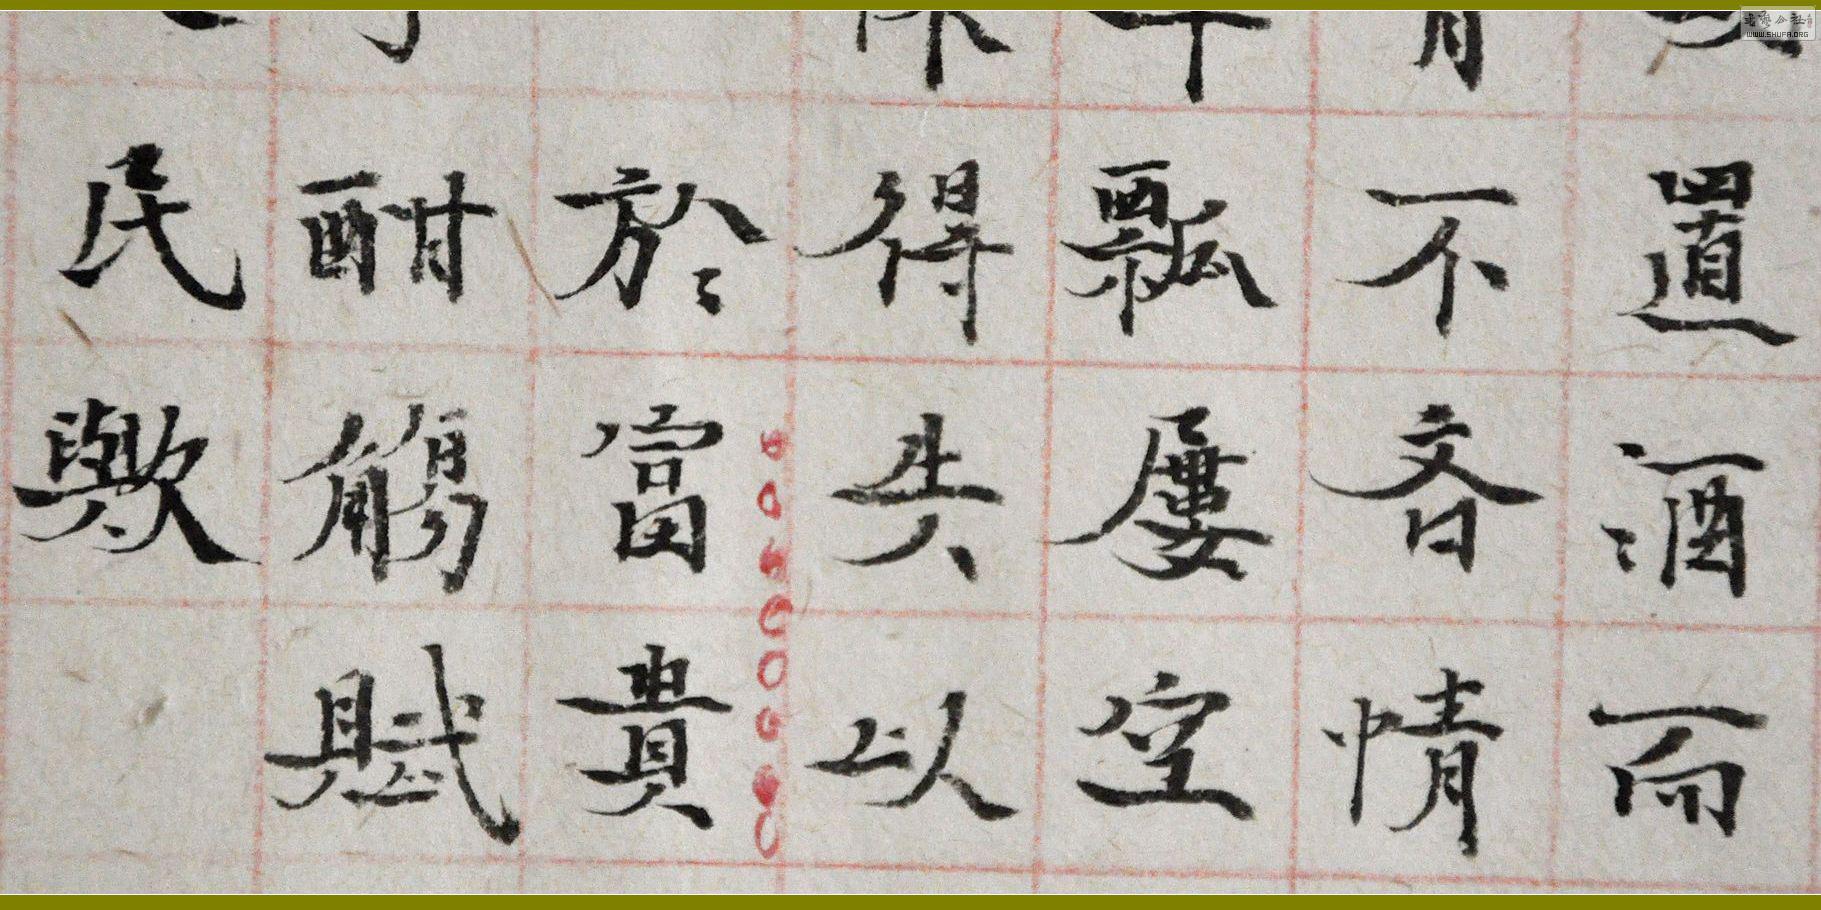 置酒而
不吝情
瓢屢空
得失以
於富貴
酣觴賦
民歟
书艺公社
WWW.SHUFA.ORG